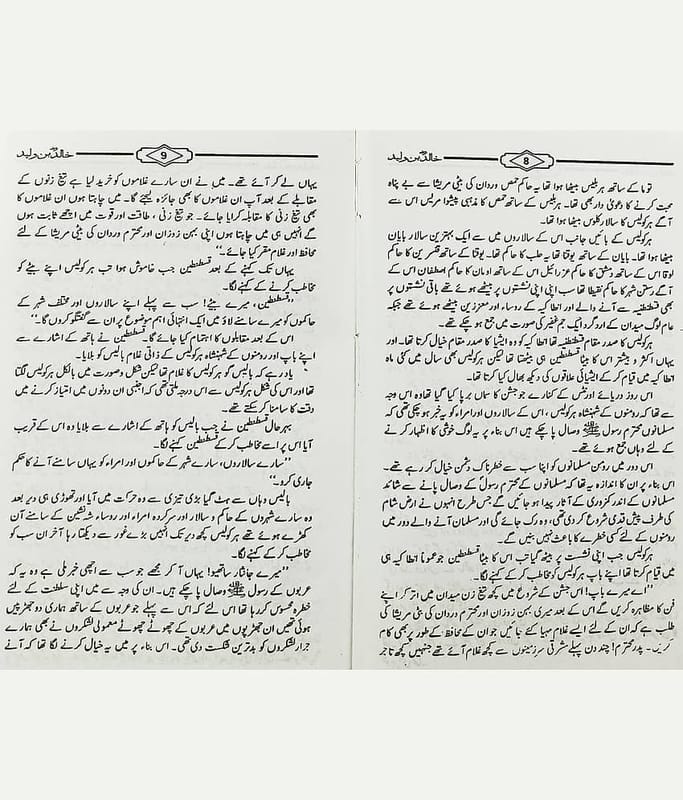 خالدؓ بن ولید 8
توما کے ساتھ ہربلیس بیٹھا ہوا تھا یہ حاکم حمص وردان کی بیٹی مریشا سے بے پناہ
محبت کرنے کا دعویٰ دار بھی تھا۔ ہربلیس کے ساتھ حمص کا مذہبی پیشوا مریس اس سے
آگے ہرکولیس کا سالار کلوس بیٹھا ہوا تھا۔
ہرکولیس کے بائیں جانب اس کے سالاروں میں سے ایک بہترین سالار بایان
بیٹھا ہوا تھا۔ بایان کے ساتھ یوقنا تھا یہ حلب کا حاکم تھا۔ یوقنا کے ساتھ قنسرین کا حاکم
لوقا اس کے ساتھ دمشق کا حاکم عزرائیل اس کے ساتھ اومان کا حاکم اصطفان اس کے
آگے رستن شہر کا حاکم نقیطا تھا سب اپنی اپنی نشستوں پر بیٹھے ہوئے تھے باقی نشستوں پر
بھی قسطنطنیہ سے آنے والے اور انطاکیہ کے روساء اور معززین بیٹھے ہوئے تھے جبکہ
عام لوگ میدان کے اردگرد ایک جم غفیر کی صورت میں جمع ہو چکے تھے۔
ہرکولیس کا صدر مقام قسطنطنیہ تھا انطاکیہ کو وہ ایشیا کا صدر مقام خیال کرتا تھا۔ اور
یہاں اکثر و بیشتر اس کا بیٹا قسطنطین ہی بیٹھتا تھا لیکن ہرکولیس بھی سال میں کئی ماہ
انطاکیہ میں قیام کر کے ایشیائی علاقوں کی دیکھ بھال کیا کرتا تھا۔
اس روز دریائے اورنٹس کے کنارے جو جشن کا سماں برپا کیا گیا تھا وہ اس وجہ
سے تھا کہ رومنوں کے شہنشاہ ہرکولیس، اس کے سالاروں اور امراء کو یہ خبر ہو چکی تھی کہ
مسلمانوں محترم رسول ﷺ وصال پا چکے ہیں اس بناء پر یہ لوگ خوشی کا اظہار کرنے
کے لئے وہاں جمع ہوئے تھے۔
اس دور میں رومن مسلمانوں کو اپنا سب سے خطرناک دشمن خیال کر رہے تھے۔
اس بناء پر ان کا اندازہ یہ تھا کہ مسلمانوں کے محترم رسولؐ کے وصال پانے سے شائد
مسلمانوں کے اندر کمزوری کے آثار پیدا ہو جائیں گے جس طرح انہوں نے ارض شام
کی طرف پیش قدمی شروع کر دی تھی، وہ رک جائے گی اور مسلمان آنے والے دور میں
رومنوں کے لئے کسی خطرے کا باعث نہیں بنیں گے۔
ہرکولیس جب اپنی نشست پر بیٹھ گیا تب اس کا بیٹا قسطنطین جو عموماً انطاکیہ ہی
میں قیام کرتا تھا اپنے باپ ہرکولیس کو مخاطب کر کے کہنے لگا۔
”اے میرے باپ! اس جشن کے شروع میں کچھ تیغ زن میدان میں اتر کر اپنے
فن کا مظاہرہ کریں گے اس کے بعد میری بہن زوزان اور محترم وردان کی بیٹی مریشا کی
طلب ہے کہ ان کے لئے ایسے غلام مہیا کے جائیں جو ان کے محافظ کے طور پر بھی کام
کریں۔ پدر محترم! چند دن پہلے مشرقی سرزمینوں سے کچھ غلام آئے تھے جنہیں کچھ تاجر
خالدؓ بن ولید 9
یہاں لے کر آئے تھے۔ میں نے ان سارے غلاموں کو خرید لیا ہے تیغ زنوں کے
مقابلے کے بعد آپ ان غلاموں کا بھی جائزہ لیجئے گا۔ میں چاہتا ہوں ان غلاموں کا
بھی تیغ زنی کا مقابلہ کرایا جائے۔ جو تیغ زنی، طاقت اور قوت میں اچھے ثابت ہوں
گے انہیں ہی میں چاہتا ہوں اپنی بہن زوزان اور محترم وردان کی بیٹی مریشا کے لئے
محافظ اور غلام مقرر کیا جائے۔“
یہاں تک کہنے کے بعد قسطنطین جب خاموش ہوا تب ہرکولیس اپنے بیٹے کو
مخاطب کرنے کے کہنے لگا۔
”قسطنطین، میرے بیٹے! سب سے پہلے اپنے سالاروں اور مختلف شہر کے
حاکموں کو میرے سامنے لاؤ میں ایک انتہائی اہم موضوع پر ان سے گفتگو کروں گا۔“
اس کے بعد مقابلوں کا اہتمام کیا جائے گا۔ قسطنطین نے ہاتھ کے اشارے سے
اپنے باپ اور رومنوں کے شہنشاہ ہرکولیس کے ذاتی غلام بالیس کو بلایا۔
یاد رہے کہ بالیس گو ہرکولیس کا غلام تھا لیکن شکل و صورت میں بالکل ہرکولیس لگتا
تھا اور اس کی شکل ہرکولیس سے اس درجہ ملتی تھی کہ اجنبی ان دونوں میں امتیاز کرنے میں
دقت کا سامنا کر سکتے تھے۔
بہرحال قسطنطین نے جب بالیس کو ہاتھ کے اشارے سے بلایا وہ اس کے قریب
آیا اس پر اسے مخاطب کر کے قسطنطین کہنے لگا۔
”سارے سالاروں، سارے شہر کے حاکموں اور امراء کو یہاں سامنے آنے کا حکم
جاری کرو۔“
بالیس وہاں سے ہٹ گیا بڑی تیزی سے وہ حرکت میں آیا اور تھوڑی ہی دیر بعد
وہ سارے شہروں کے حاکم و سالار اور سرکردہ امراء اور روساء شہ نشین کے سامنے آن
کھڑے ہوئے تھے ہرکولیس کچھ دیر تک انہیں بڑے غور سے دیکھتا رہا آخر ان سب کو
مخاطب کر کے کہنے لگا۔
”میرے جانثار ساتھیو! یہاں آ کر مجھے جو سب سے اچھی خبر ملی ہے وہ یہ کہ
عربوں کے رسول ﷺ وصال پا چکے ہیں۔ ان کی وجہ سے میں اپنی سلطنت کے لئے
خطرہ محسوس کر رہا تھا اس لئے کہ اس سے پہلے جو عربوں کے ساتھ ہماری دو جھڑپیں
ہوئی تھیں ان جھڑپوں میں عربوں کے چھوٹے چھوٹے معمولی لشکروں نے بھی ہمارے
جرار لشکروں کو بدترین شکست دی تھی۔ اس بناء پر میں یہ خیال کرنے لگا تھا کہ آنے